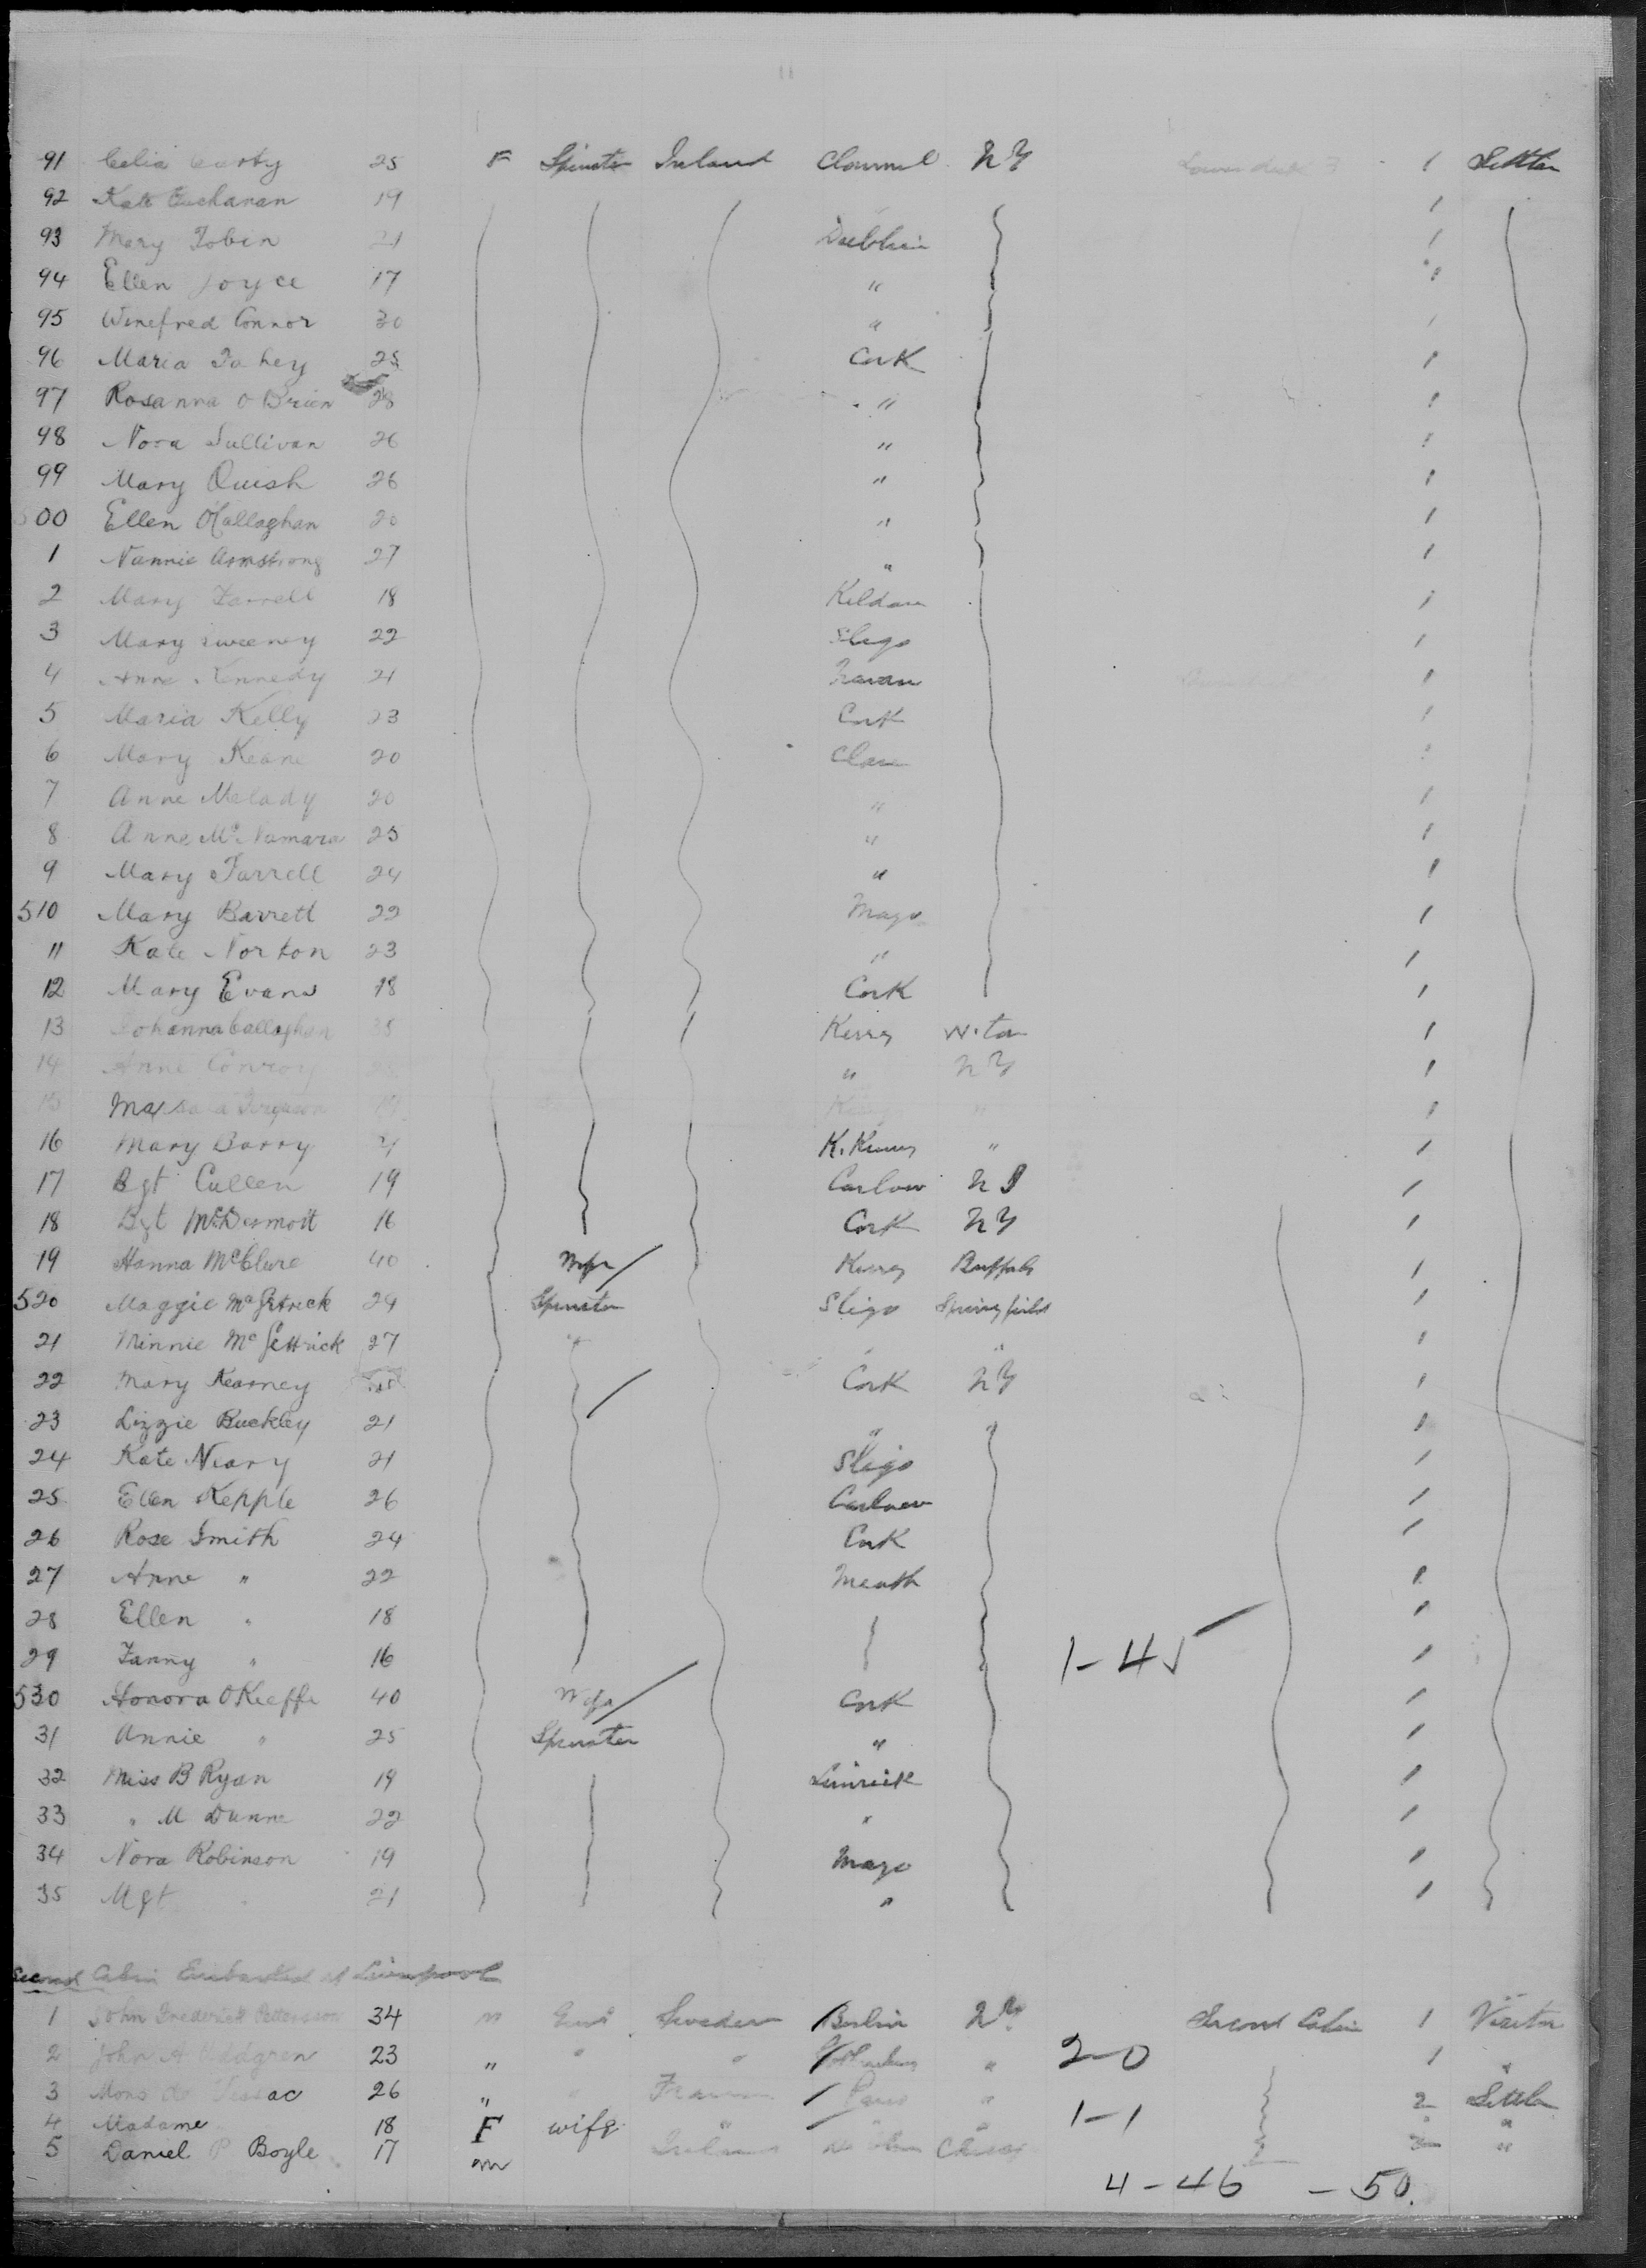 91 Celia Carty 25 F Spinster Ireland Clonmel NY 1 Settler
92 Kate Buchanan 19 1
93 Mary Tobin 21 Dublin 1
94 Ellen Joyce 17 " 1
95 Winefred Connor 30 " 1
96 Maria Fahey 25 Cork 1
97 Rosanna O Brien 28 " 1
98 Nora Sullivan 26 " 1
99 Mary Quish 26 " 1
500 Ellen OCallaghan 20 " 1
1 Nannie Armstrong 27 " 1
2 Mary Farrell 18 Kildare 1
3 Mary Sweeney 22 Sligo 1
4 Anne Kennedy 21 1
5 Maria Kelly 23 Cork 1
6 Mary Keane 20 Clare 1
7 Anne Melady 20 " 1
8 Anne Mc Namara 25 " 1
9 Mary Farrell 24 " 1
510 Mary Barrett 22 Mayo 1
11 Kate Norton 23 " 1
12 Mary Evans 18 Cork 1
13 Johanna Callaghan 35 Kerry W.ton 1
14 Anne Conroy " NY 1
15 " 1
16 Mary Barry 21 K.Kenny " 1
17 Bgt Cullen 19 Carlow NJ 1
18 Bgt McDermott 16 Cork NY 1
19 Hanna McClure 40 Wife Kerry Buffalo 1
520 Maggie McGetrick 24 Spinster Sligo Springfield 1
21 Minnie McGettrick 27 " " " 1
22 Mary Kearney Cork NY 1
23 Lizzie Buckley 21 " " 1
24 Kate Neary 21 Sligo 1
25 Ellen Kepple 26 Carlow 1
26 Rose Smith 24 Cork 1
27 Anne " 22 Meath 1
28 Ellen " 18 1
29 Fanny " 16 1-45 1
530 Honora OKeeffe 40 Wife Cork 1
31 Annie " 25 Spinster " 1
32 Miss B Ryan 19 Limrick 1
33 " M Dunne 22 " 1
34 Nora Robinson 19 Mayo 1
35 Mgt " 21 " 1
Second Cabin Embarked at Liverpool
1 John Frederick Pettersson 34 m Gent Sweden Berlin NY Second Cabin 1 Visitor
2 John A 23 " " " " 2-0 1 "
3 Mons de 26 " " France Paris " 1-1 2 Settler
4 Madame 18 F wife " " " " "
5 Daniel P Boyle 17 m Ireland 2 "
4-46 - 50.